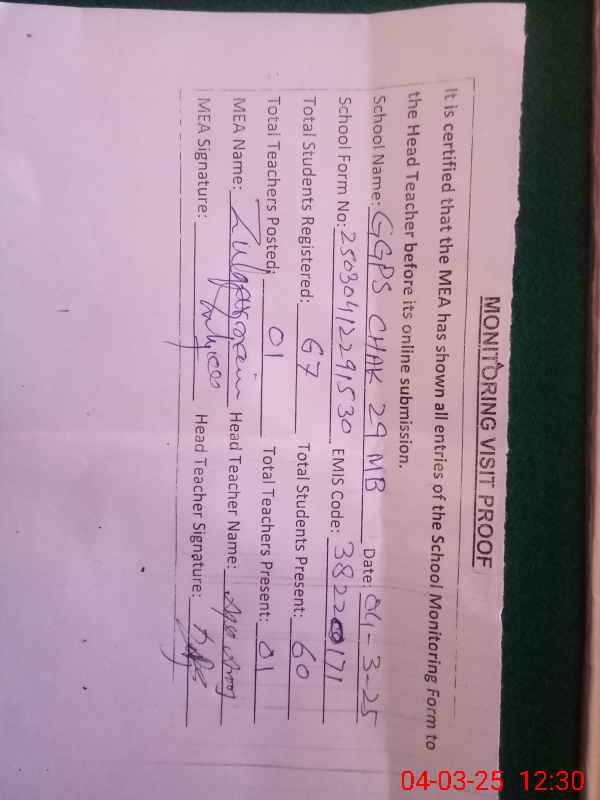 MONITORING VISIT PROOF
It is certified that the MEA has shown all entries of the School Monitoring Form to
the Head Teacher before its online submission.
School Name: GGPS CHAK 29 MB Date: 04-3-25
School Form No: 25030412291530 EMIS Code: 38220171
Total Students Registered: 67 Total Students Present: 60
Total Teachers Posted: 01 Total Teachers Present: 01
MEA Name: Head Teacher Name:
MEA Signature: Head Teacher Signature:
04-03-25 12:30